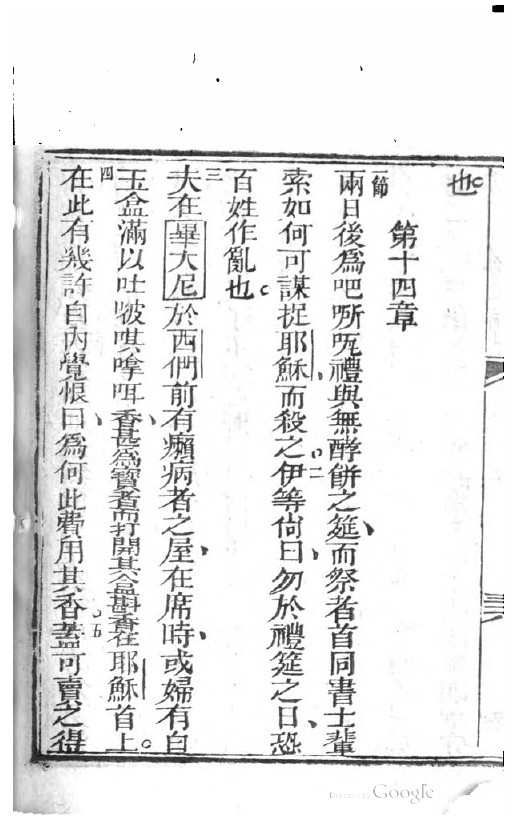 也
第十四章
一節兩日後爲吧㗔𠯈禮與無酵餅之筵、而祭者首同書士輩
索如何可謀捉耶穌、而殺之。二伊等尙曰、勿於禮筵之日、恐
百姓作亂也。
三夫在畢大尼於西們前有癩病者之屋、在席時、或婦有白
玉盒滿以吐㗑唭嗱咡香、甚爲寶者、而打開其盒、斟香在耶穌首上。
四在此有幾許自內覺恨、曰、爲何此費用其香、五蓋可賣之得
Google